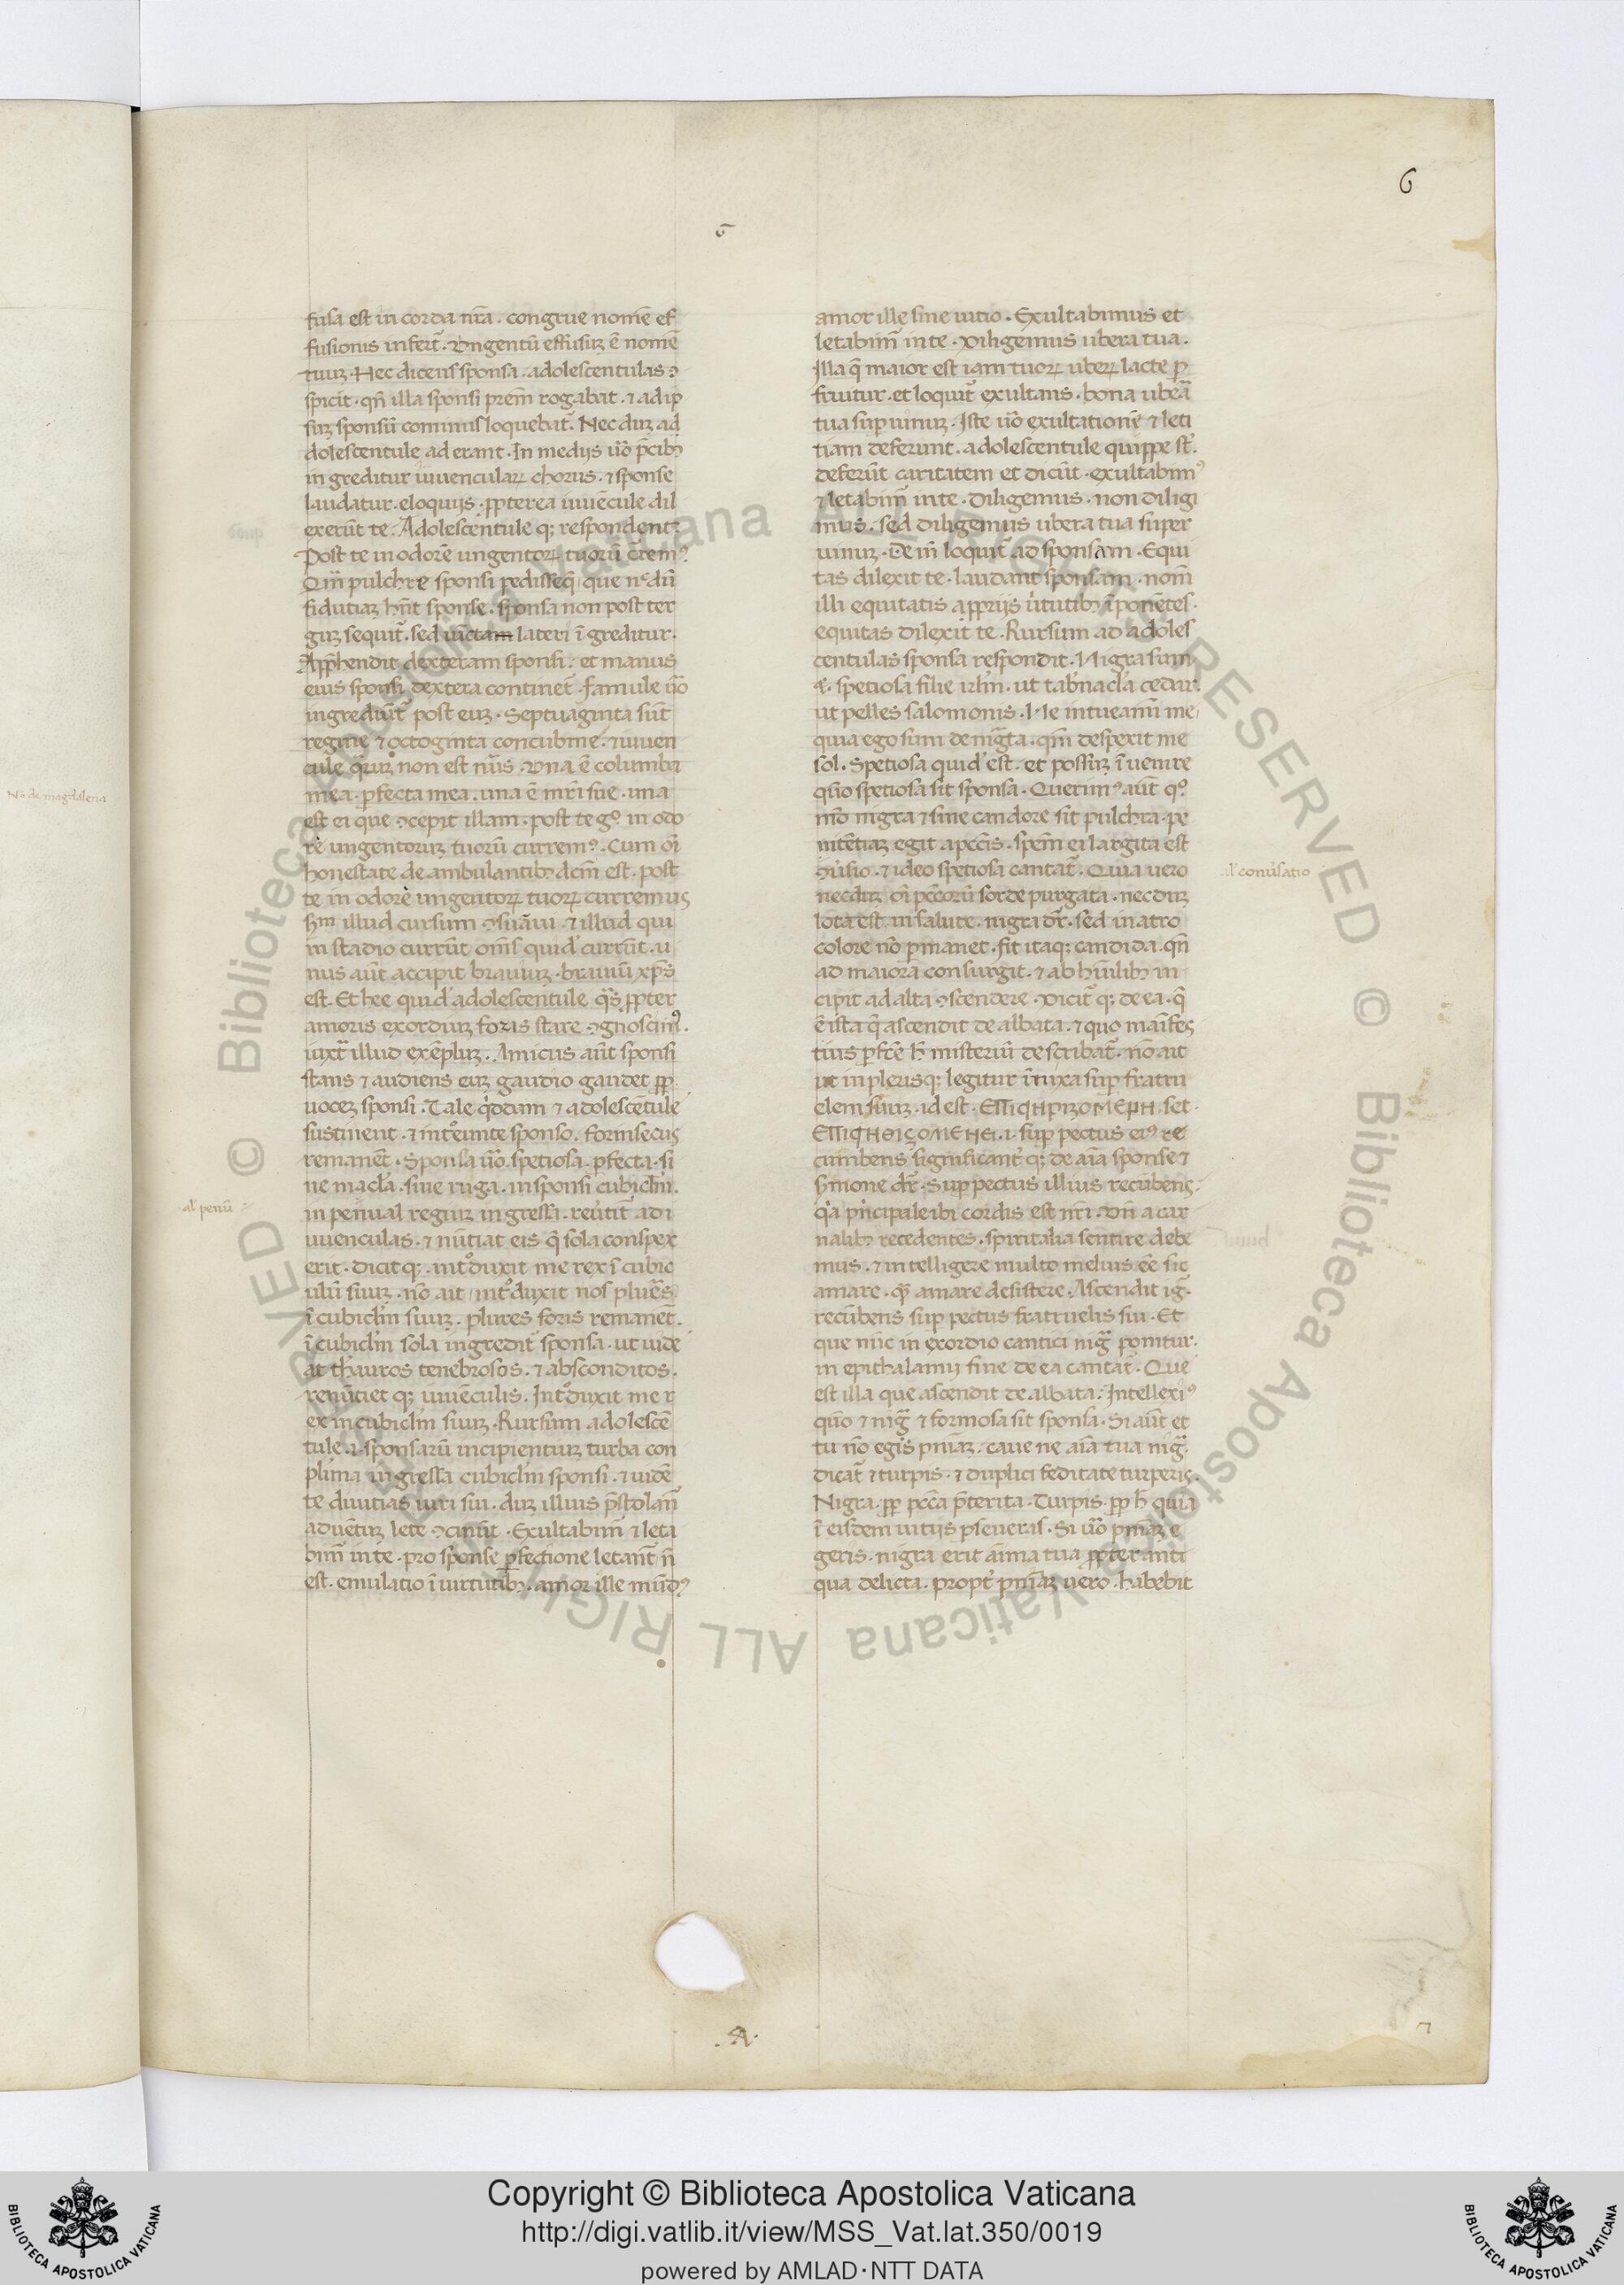 6
fusa est in corda nr̄a . congrue nomē ef
fusionis infert̄ . Vngentū effusuȝ ē nomē
tuuȝ . Hec dicens sponsa . adolescentulas ↄ
spicit . qn̄ illa sponsi prem̄ rogabat . ⁊ ad ip
suȝ sponsū cominus loquebat̄ . Nec duȝ ad
dolescentule ad erant . In medijs ūo p̄cibȝ
in greditur iuuencularꝝ chorus . ⁊ sponse
laudatur . eloquijs . ꝓpterea iuuēcule dil
exerūt te . Adolescētule qȝ respondent
Post te in odorē ungentorꝝ tuorū cr̄em⁹
Qm̄ pulchre sponsi pedisseq̄ que necdū
fidutiaȝ hn̄t sponse . sponsa non post ter
guȝ sequit̄ . sed uīctam lateri ī greditur .
Apphendit dexteram sponsi . et manus
eius sponsi dextera continet̄ . famule ūo
ingrediūt̄ post euȝ . Septuaginta sūt
regine ⁊ octoginta concubine . ⁊ iuuen
cule q̄ruȝ non est nūs . Vna ē columba
mea . ꝑfecta mea . una ē mr̄i sue . una
est ei que ↄcepit illam . post te gº in odo
rē ungentoruȝ tuorū currem⁹ . Cum oī
honestate de ambulantibȝ dcm̄ est . post
te in odorē ungentorꝝ tuorꝝ curremus
sm̄ illud cursum ↄsūaui . ⁊ illud qui
in stadio currūt oms̄ quid' currūt . u
nus aūt accipit brauiuȝ . brauiū xp̄s
est . Et hee quid' adolescentule q̄s ꝓpter
amoris exorduȝ foris stare ↄgnoscim⁹ .
iuxt̄ illud exēpluȝ . Amicus aūt sponsi
stans ⁊ audiens euȝ gaudio gaudet ꝓp
uoceȝ sponsi . Tale q̇ddam ⁊ adolescētule
sustinent . ⁊ intºeunte sponso . forinsecus
remanēt . Sponsa ūo . spetiosa . ꝑfecta . si
ne macl'a . sine ruga . in sponsi cubiclm̄ .
in penual regiuȝ ingressa . reūtit̄ ad i
uuenculas . ⁊ nūtiat eis q̄ sola conspex
erit . dicit qȝ . intºduxit me rex ī cubic
ulū suuȝ . nō ait intºduxit nos plures
ī cubiclm̄ suuȝ . plures foris remanēt .
ī cubiclm̄ sola ingredit̄ sponsa . ut uide
at th'auros tenebrosos . ⁊ absconditos .
renūtiet qȝ iuuēculis . Intºduxit me r
ex in cubiclm̄ suuȝ . Rursum adolescē
tule .i. sponsarū incipientuȝ turba con
plima ingressa cubiclm̄ sponsi . ⁊ uidē
te diuitias uiri sui . duȝ illius p̄stolan̄
aduētuȝ lete ↄcinūt . Exultabim̄ ⁊ leta
bim̄ in te . pro sponse ꝑfectione letant̄ n̄
est . emulatio ī uirtutibȝ . amor ille mūd⁹
al' penū
amor ille sine uitio . Exultabimus et
letabim̄ in te . Diligemus ubera tua .
Illa q̄ maior est iam tuorꝝ uberꝝ lacte ꝑ
fruitur . et loquit̄ exultans . bona ubea
tua suꝑ uinuȝ . Iste ūo exultationē ⁊ leti
tiam deferunt . adolescentule quippe st̄ .
deferūt caritatem et dicūt . exultabim⁹
⁊ letabim̄ in te . diligemus . non diligi
mus . sed diligemus ubera tua super
uinuȝ . De in̄ loquit̄ ad sponsam . Equi
tas dilexit te . laudant sponsam . nom̄
illi equitatis a ꝓprijs ūtutibȝ īponētes .
equitas dilexit te . Rursum ad adoles
centulas sponsa respondit . Nigra sum
⁊ . spetiosa filie irl'm . ut tab'nacl'a cedar .
ut pelles salomonis . Ne intueamī me
quia ego sum denigrata . qm̄ despexit me
sol . Spetiosa quid' est . et possuȝ ī uenire
quō spetiosa sit sponsa . Querim⁹ aūt qº
mō nigra ⁊ sine candore sit pulchra . pe
nitētiaȝ egit a pcc̄is . spem̄ ei largita est
ↄu'sio . ⁊ ideo spetiosa cantat̄ . Quia uero
necduȝ oī pcc̄orū sorde purgata . necduȝ
lota est in salute . nigra dr̄ . sed in atro
colore nō ꝑmanet . fit itaqȝ candida . qn̄
ad maiora consurgit . ⁊ ab humilibȝ in
cipit ad alta ↄscendere . Dicit̄ qȝ de ea . q̄
ē ista q̄ ascendit de albata . ⁊ quo manifes
tius ꝑfcē h̄ misteriū describat̄ . nō ait
ut in plerisqȝ legitur īnixa suꝑ fratru
elem suuȝ . id est . ΕΠΙϤΗΡΙΖΟΜΕΡΗ . set .
ΕΠΙϤΗΘΙϚΟΜΕΗΘΙ .i. suꝑ pectus ei⁹ re
cumbens significant̄ qȝ de aīa sponse ⁊
s'mone dr̄ . Suꝑ pectus illius recūbens .
q̇a pⁱncipale ibi cordis est nr̄i . Vn̄ a car
nalibȝ recedentes . spiritalia sentire debe
mus . ⁊ intelligere multo melius eē sic
amare . q̄ amare desistere . Ascendit ig̃ .
recūbens suꝑ pectus fratruelis sui . Et
que nūc in exordio cantici nig̃ ponitur .
in epithalamij fine de ea cantat̄ . Que
est illa que ascendit de albata . Intellexi⁹
quō ⁊ nig̃ ⁊ formosa sit sponsa . Si aūt et
tu nō egis pniaȝ . caue ne aīa tua nig̃ .
dicat̄ ⁊ turpis . ⁊ duplici feditate turperis .
Nigra . ꝓp pcc̄a p̄terita . Turpis . ꝓp h̄ quia
ī eisdem uitijs ꝑseueras . Si ūo pniaȝ e
geris . nigra erit anima tua ꝓpter anti
qua delicta . propt' pniaȝ uero . habebit
al' conu'satio
.A.
Nª de magdalena
Copyright © Biblioteca Apostolica Vaticana
http://digi.vatlib.it/view/MSS_Vat.lat.350/0019
powered by AMLAD·NTT DATA
BIBLIOTECA APOSTOLICA VATICANA
BIBLIOTECA APOSTOLICA VATICANA
© Biblioteca Apostolica Vaticana ALL RIGHTS RESERVED
© Biblioteca Apostolica Vaticana ALL RIGHTS RESERVED